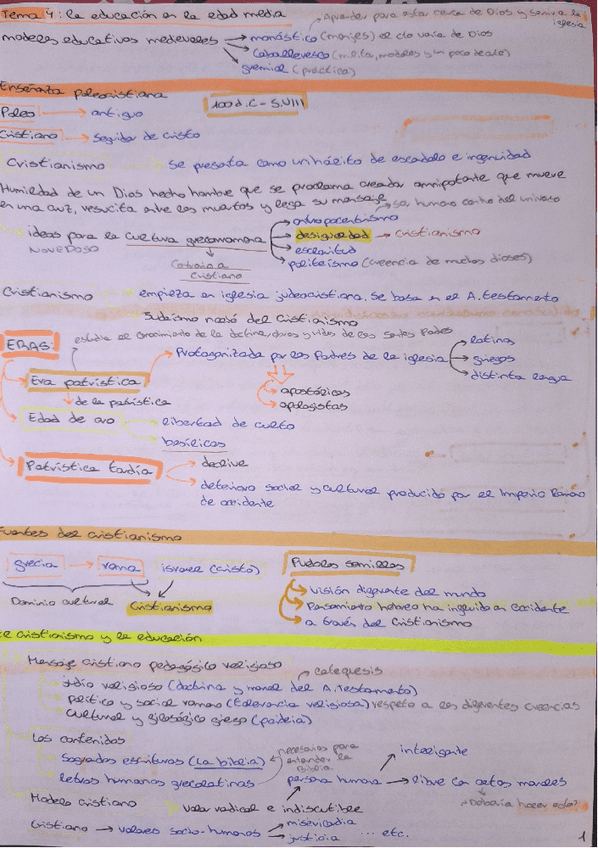 Tema 4: la educación en la edad media
Aprender para estar cerca de Dios y servir a la iglesia
modelos educativos medievales → monástico (monjes) el clo cerca de Dios
→ Caballeresco (milita, modales y un poco de
→ gremial (práctica)
Enseñanza paleocristiana
100 d.C - S.VIII
Paleo → antiguo
Cristiano → seguidor de cristo
Cristianismo → se presenta como un hálito de escándalo e ingenuidad
Humildad de un Dios hecho hombre que se proclama creador omnipotente que muere
en una cruz, resucita entre los muertos y lega su mensaje
→ ser humano centro del universo
ideas para la cultura grecorromana
NOVEDOSO
antropocentrismo
desigualdad → cristianismo
esclavitud
politeísmo (creencia de muchos dioses)
Contraria a
cristiano
Cristianismo → empieza en iglesia judeocristiana. Se basa en el A. testamento
Judaismo nació del cristianismo
ERAS:
estudia el conocimiento de la doctrina, obras y vidas de los Santos Padres
Era patrística → Protagonizada por los Padres de la iglesia
latinos
griegos
distinta lengua
de la patrística
apostólicos
apologistas
Edad de oro → libertad de culto
basílicas
Patrística tardía → declive
deterioro social y cultural producido por el Imperio Romano
de occidente
Fuentes del cristianismo
grecia → roma israel (cristo)
Dominio cultural Cristianismo
Pueblos semillas
Visión diferente del mundo
Pensamiento hebreo ha influido en occidente
a través del Cristianismo
cristianismo y la educación
Mensaje cristiano pedagógico religioso → catequesis
Judío religioso (doctrina y moral del A. Testamento)
político y social romano (tolerancia religiosa) respeto a las diferentes creencias
Cultural y filosófico griego (paideia)
Los contenidos
Sagradas escrituras (La biblia)
necesarios para
entender la
Biblia
Letras humanas grecolatinas
persona humana → libre con actos morales
inteligente
¿Debería hacer esto?
Modelo cristiano → valor radical e indiscutible
Cristiano → valores socio-humanos → misericordia
→ justicia ... etc.
1